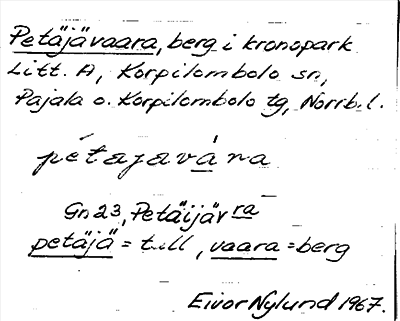 Petäjävaara, berg i kronopark
Litt. A, Korpilombolo sn,
Pajala o. Korpilombolo tg, Norrb. l.
pétajavàra
Gn 23, Petäijävra
petäjä = tall, vaara = berg
Eivor Nylund 1967.